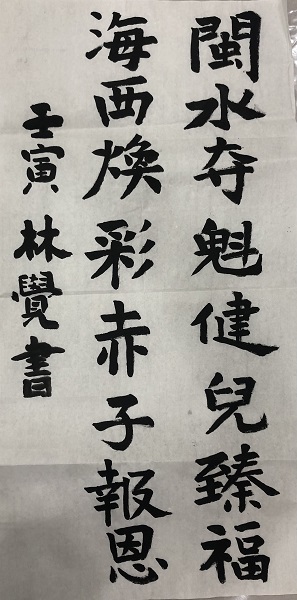 閩水夺魁健兒臻福
海西煥彩赤子報恩
壬寅 林覺書